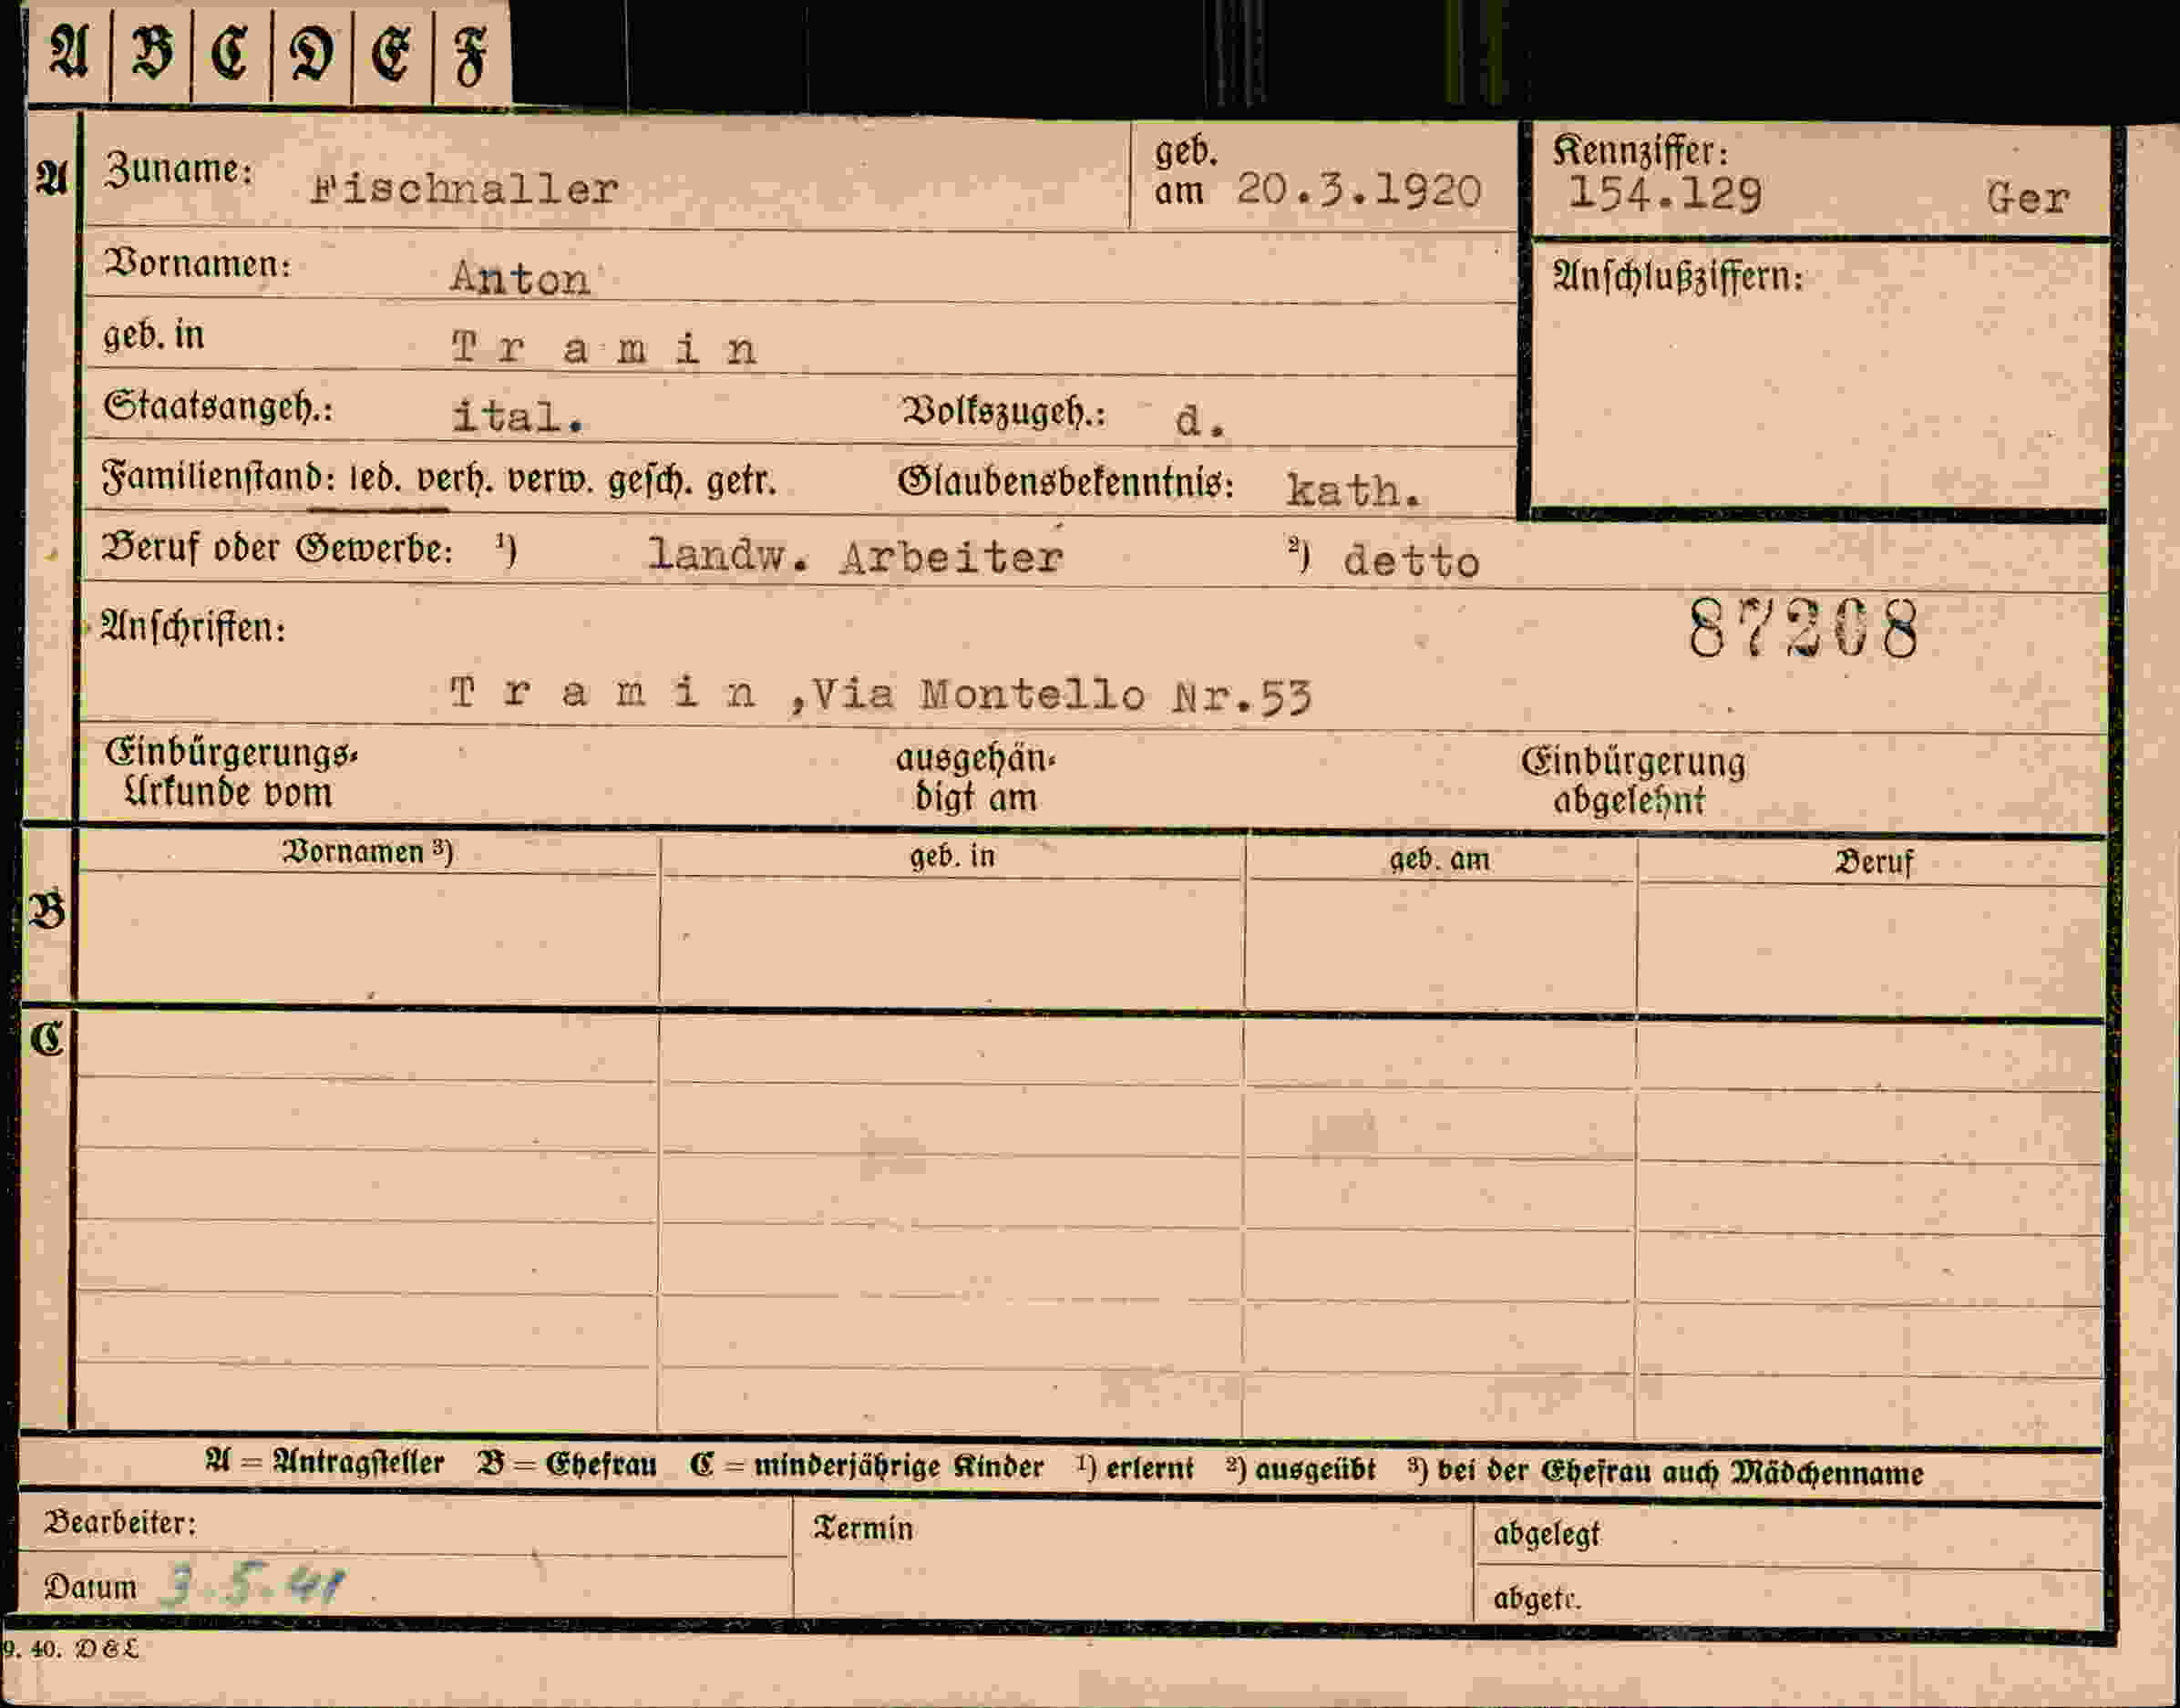 A B C D E F
A Zuname: Fischnaller geb. am 20.3.1920 Kennziffer: 154.129 Ger
Vornamen: Anton Anschlußziffern:
geb. in T r a m i n
Staatsangeh.: ital. Volkszugeh.: d.
Familienstand: led. verh. verw. gesch. getr. Glaubensbekenntnis: kath.
Beruf oder Gewerbe: ¹) landw. Arbeiter ²) detto
Anschriften: 87208
T r a m i n ,Via Montello Nr.53
Einbürgerungs- ausgehän- Einbürgerung
Urkunde vom digt am abgelehnt
Vornamen ³) geb. in geb. am Beruf
B
C
A = Antragsteller B = Ehefrau C = minderjährige Kinder ¹) erlernt ²) ausgeübt ³) bei der Ehefrau auch Mädchenname
Bearbeiter: Termin abgelegt
Datum 3.5.41 abgetr.
9. 40. D & L